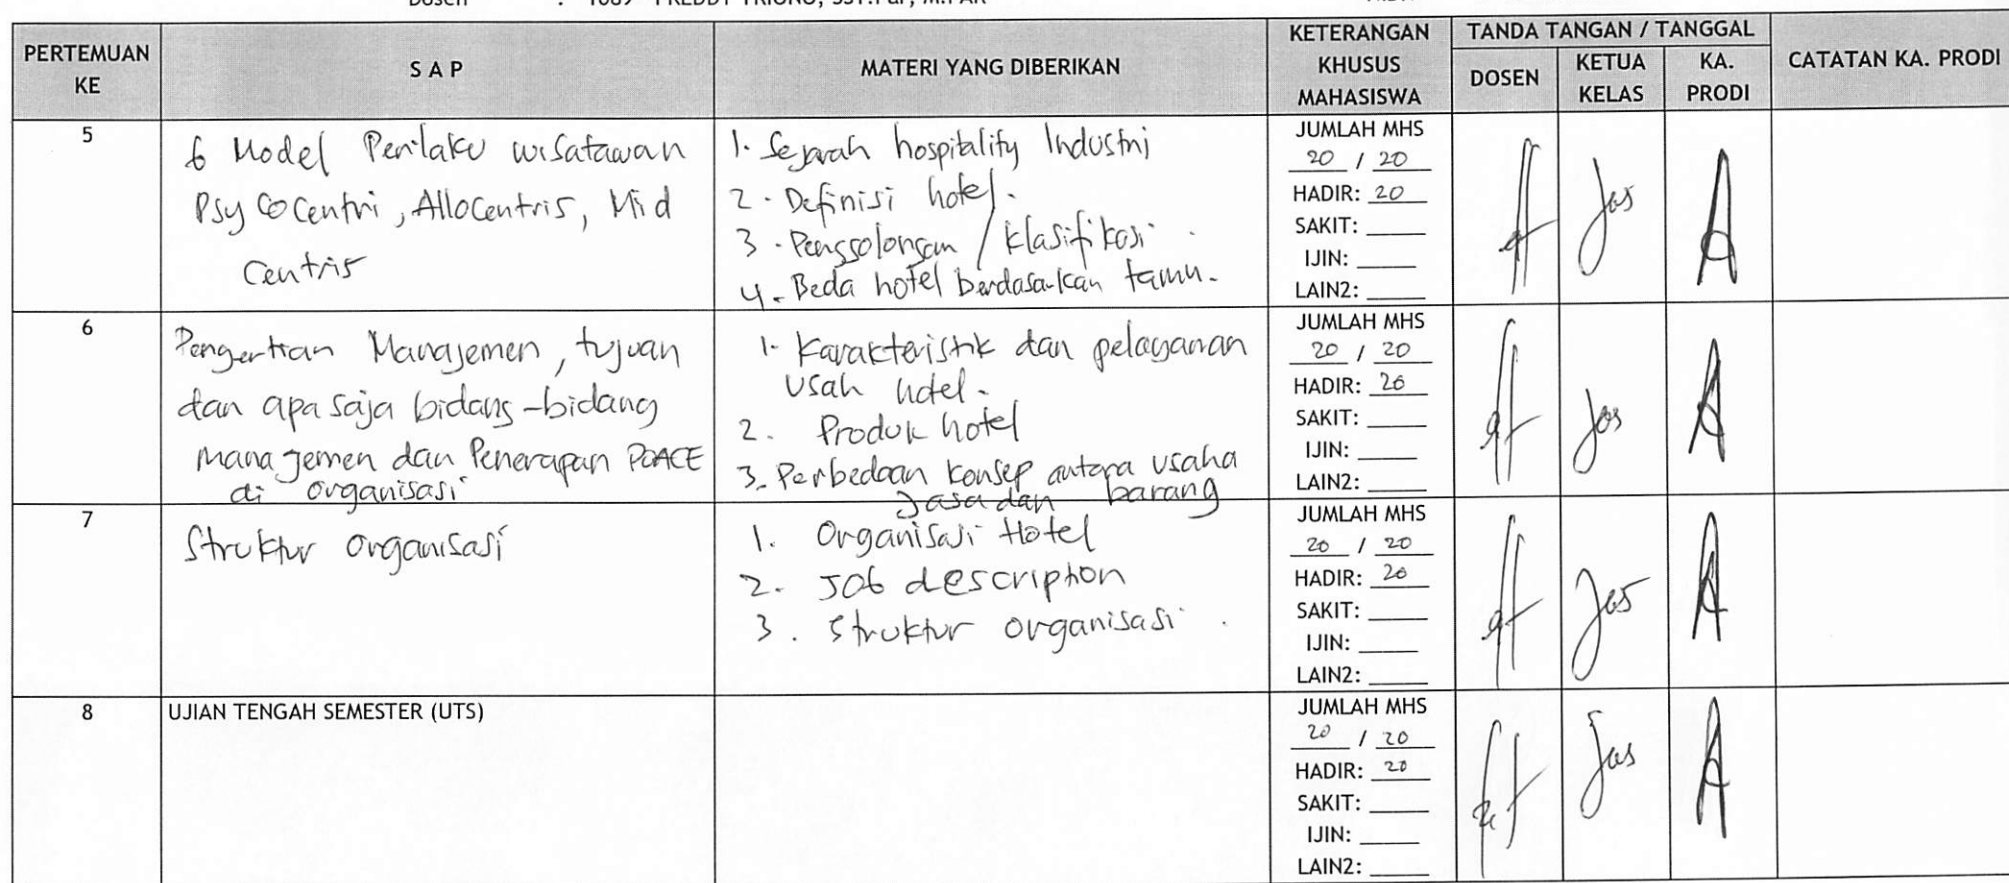 Dosen : 1089 FREDDY TRIONO, SST.Par, M.PAR
PERTEMUAN KE
S A P
MATERI YANG DIBERIKAN
KETERANGAN KHUSUS MAHASISWA
TANDA TANGAN / TANGGAL
DOSEN
KETUA KELAS
KA. PRODI
CATATAN KA. PRODI
5
6 Model Perilaku wisatawan
Psycocentri, Allocentris, Mid
Centris
1. Sejarah hospitality Industri
2. Definisi hotel.
3. Penggolongan / klasifikasi.
4. Beda hotel berdasarkan tamu.
JUMLAH MHS
20 / 20
HADIR: 20
SAKIT:
IJIN:
LAIN2:
Jos
A
6
Pengertian Manajemen, tujuan
dan apa saja bidang-bidang
manajemen dan Penerapan POACE
di organisasi
1. Karakteristik dan pelayanan
usah hotel.
2. Produk hotel
3. Perbedaan konsep antara usaha
Jasa dan barang
JUMLAH MHS
20 / 20
HADIR: 20
SAKIT:
IJIN:
LAIN2:
Jos
A
7
Struktur organisasi
1. Organisasi Hotel
2. Job description
3. Struktur organisasi.
JUMLAH MHS
20 / 20
HADIR: 20
SAKIT:
IJIN:
LAIN2:
Jos
A
8
UJIAN TENGAH SEMESTER (UTS)
JUMLAH MHS
20 / 20
HADIR: 20
SAKIT:
IJIN:
LAIN2:
Jos
A